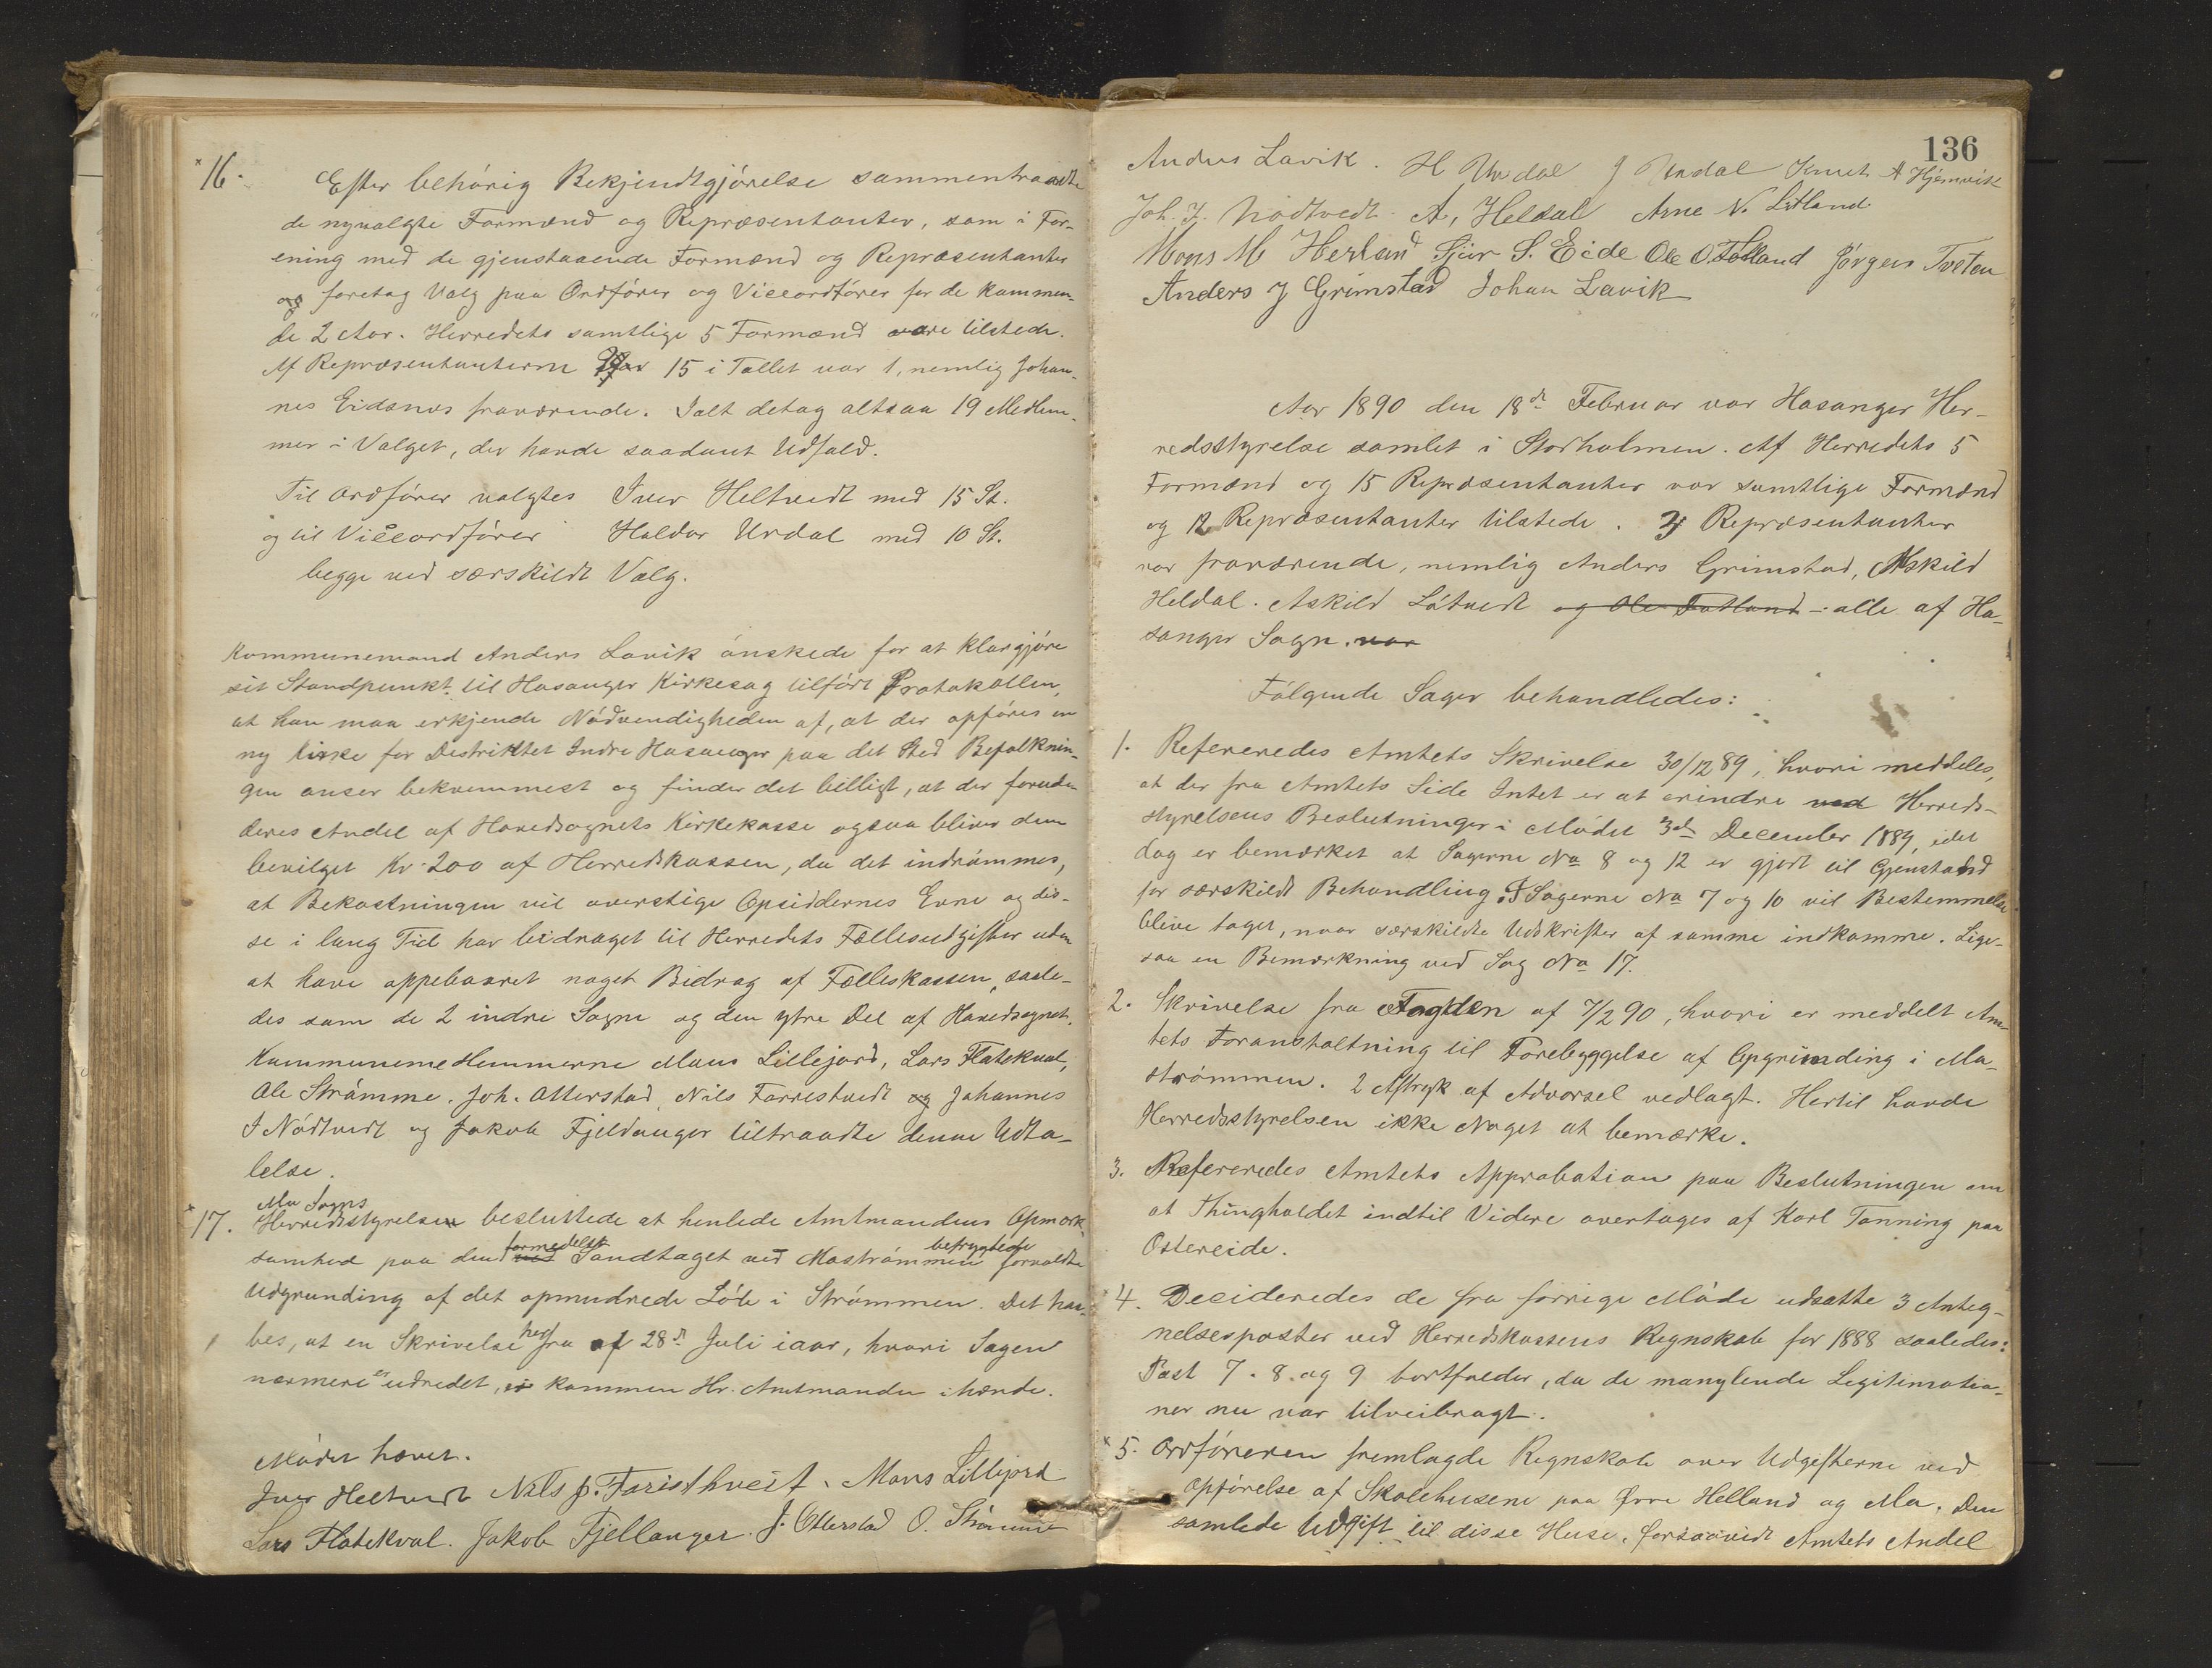 16. Efter behórig Bekjendtgjórelse sammentraadte
de nyvalgte Formænd og Repræsentanter, som i For-
ening med de gjenstaaende Formænd og Repræsentanter
og foretog Valg paa Ordfórer og Viceordfórer for de kommen-
de 2 Aar. Herredets samtlige 5 Formænd vare tilstede.
Af Repræsentanterne 15 i Tallet var 1, nemlig Johan-
nes Eidsnes fraværende. Ialt deltog altsaa 19 Medlem-
mer i Valget, der havde saadant Udfald.
Til Ordfórer valgtes Iver Heltvedt med 15 St.
og til Viceordfórer Haldor Urdal med 10 St.
begge ved særskildt Valg.
Kommunemand Anders Lavik ónskede for at klargjóre
sit Standpunkt til Hosanger Kirkesag tilfórt Protokollen,
at han maa erkjende Nódvendigheden af, at der opfóres en
ny kirke for Distriktet Indre Hosanger paa det Sted Befolknin-
gen anser bekvemmest og finder det billigt, at der foruden
deres Andel af Hovedsognets Kirkekasse ogsaa bliver dem
bevilget Kr 200 af Herredskassen, da det indrómmes,
at Bekostningen vil overstige Opsiddernes Evne og dis-
se i lang Tid har bidraget til Herredets Fællesudgifter uden
at have oppebaaret noget Bidrag af Fælleskassen, saale-
des som de 2 indre Sogne og den ytre Del af Hovedsognet.
Kommunemedlemmerne Mons Lillejord, Lars Flatekval,
Ole Strómme. Joh. Otterstad, Nils Farrestvedt og Johannes
I Nódtvedt og Jakob Fjeldanger tiltraadte denne Udta-
lelse.
Mo Sogns
17. Herredsstyrelsen besluttede at henlede Amtmandens Opmærk-
formedelst befrygtede
somhed paa den ved Sandtaget ved Mostrómmen forvoldte
Udgrunding af det opmudrede Lób i Strómmen. Det haa-
bes, at en Skrivelse herfra af 28de Juli iaar, hvori Sagen
nærmere er udredet, er kommen Hr. Amtmanden ihænde.
Módet hævet.
Iver Heltvedt Nils J. Faristhveit. Mons Lillejord
Lars Flatekval. Jakob Fjellanger. J. Otterstad O. Strómme
136
Anders Lavik. H Urdal J Urdal Knut A Hjemvik
Joh. I. Nódtvedt. A, Heldal Arne N. Litland
Mons M Herland Sjur S. Eide Ole O. Totland Jórgen Tveten
Anders J Grimstad Johan Lavik
Aar 1890 den 18de Februar var Hosanger Her-
redsstyrelse samlet i Storholmen. Af Herredets 5
Formænd og 15 Repræsentanter var samtlige Formænd
og 12 Repræsentanter tilstede. 3 Repræsentanter
var fraværende, nemlig Anders Grimstad, Askild
Heldal. Askild Lótvedt og Ole Totland - alle af Ho-
sanger Sogn. var
Fólgende Sager behandledes:
1. Refereredes Amtets Skrivelse 30/12 89, hvori meddeles,
at der fra Amtets Side Intet er at erindre ved Herreds-
styrelsens Beslutninger i Módet 3de December 1889, idet
dog er bemærket at Sagerne No 8 og 12 er gjort til Gjenstand
for særskildt Behandling. I Sagerne No 7 og 10 vil Bestemmelse
blive taget, naar særskildte Udskrifter af samme indkomme. Lige-
saa en Bemærkning ved Sag No 17.
2. Skrivelse fra Fogden af 7/2 90, hvori er meddelt Am-
tets Foranstaltning til Forebyggelse af Opgrunding i Mo-
strómmen. 2 Aftryk af Advarsel vedlagt. Hertil havde
Herredsstyrelsen ikke Noget at bemærke.
3. Refereredes Amtets Approbation paa Beslutningen om
at Thingholdet indtil Videre overtages af Karl Tanning paa
Ostereide.
4. Decideredes de fra forrige Móde udsatte 3 Anteg-
nelsesposter ved Herredskassens Regnskab for 1888 saaledes:
Post 7. 8. og 9 bortfalder, da de manglende Legitimatio-
ner nu var tilveibragt.
5. Ordfóreren fremlagde Regnskab over Udgifterne ved
Opfórelse af Skolehusene paa Óvre Helland og Mo. Den
samlede Udgift til disse Huse, forsaavidt Amtets Andel